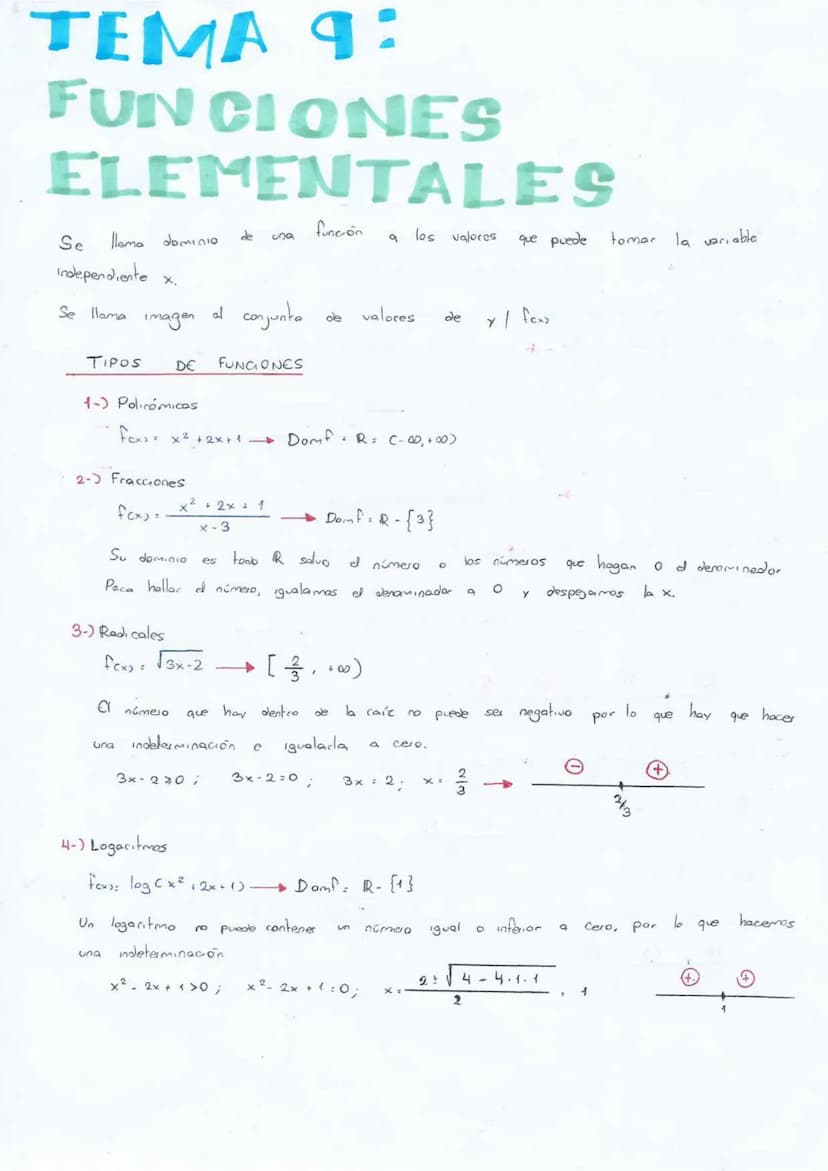 TEMA 9:
FUNCIONES
ELEMENTALES
Se llama dominio de una función a los valores que puede tomar la variable
independiente x.
Se llama imagen al conjunto de valores de y / f(x)
TIPOS DE FUNCIONES
1-) Polinómicas
f(x) = x² + 2x + 1 → Dom f = ℝ = (-∞, +∞)
2-) Fracciones
f(x) = \frac{x² + 2x + 1}{x - 3} → Dom f = ℝ - {3}
Su dominio es todo ℝ salvo el número o los números que hagan 0 el denominador
Para hallar el número, igualamos el denominador a 0 y despejamos la x.
3-) Radicales
f(x) = √(3x-2) → [2/3, +∞)
El número que hay dentro de la raíz no puede ser negativo por lo que hay que hacer
una indeterminación e igualarla a cero.
3x - 2 ≥ 0; 3x - 2 = 0; 3x = 2; x = 2/3 → ⊖ ⊕
2/3
4-) Logaritmos
f(x) = log(x² + 2x + 1) → Dom f = ℝ - {1}
Un logaritmo no puede contener un número igual o inferior a cero, por lo que hacemos
una indeterminación
x² - 2x + 1 > 0; x² - 2x + 1 = 0; x = \frac{2 ± √(4 - 4·1·1)}{2} = 1 ⊕ ⊕
1